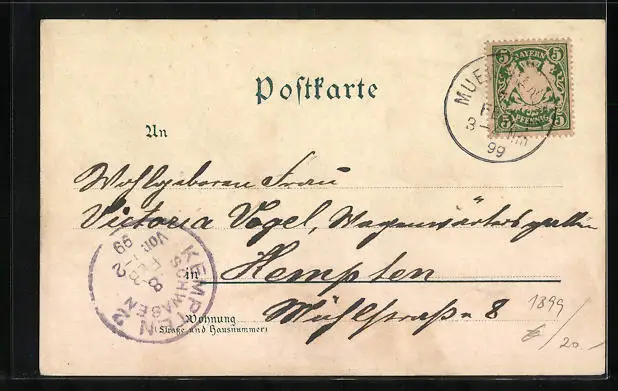 Postkarte
BAYERN
5 5
5 PFENNIG 5
MUE
3-
99
An
Wohlgeboren Frau
Victoria Vogel, Wagenwärtersgattin
in Kempten
Mühlstraße 8
Wohnung
(Straße und Hausnummer)
KEMPTEN 2
SCHWABEN
8
Vor.
99
1899
/20.-